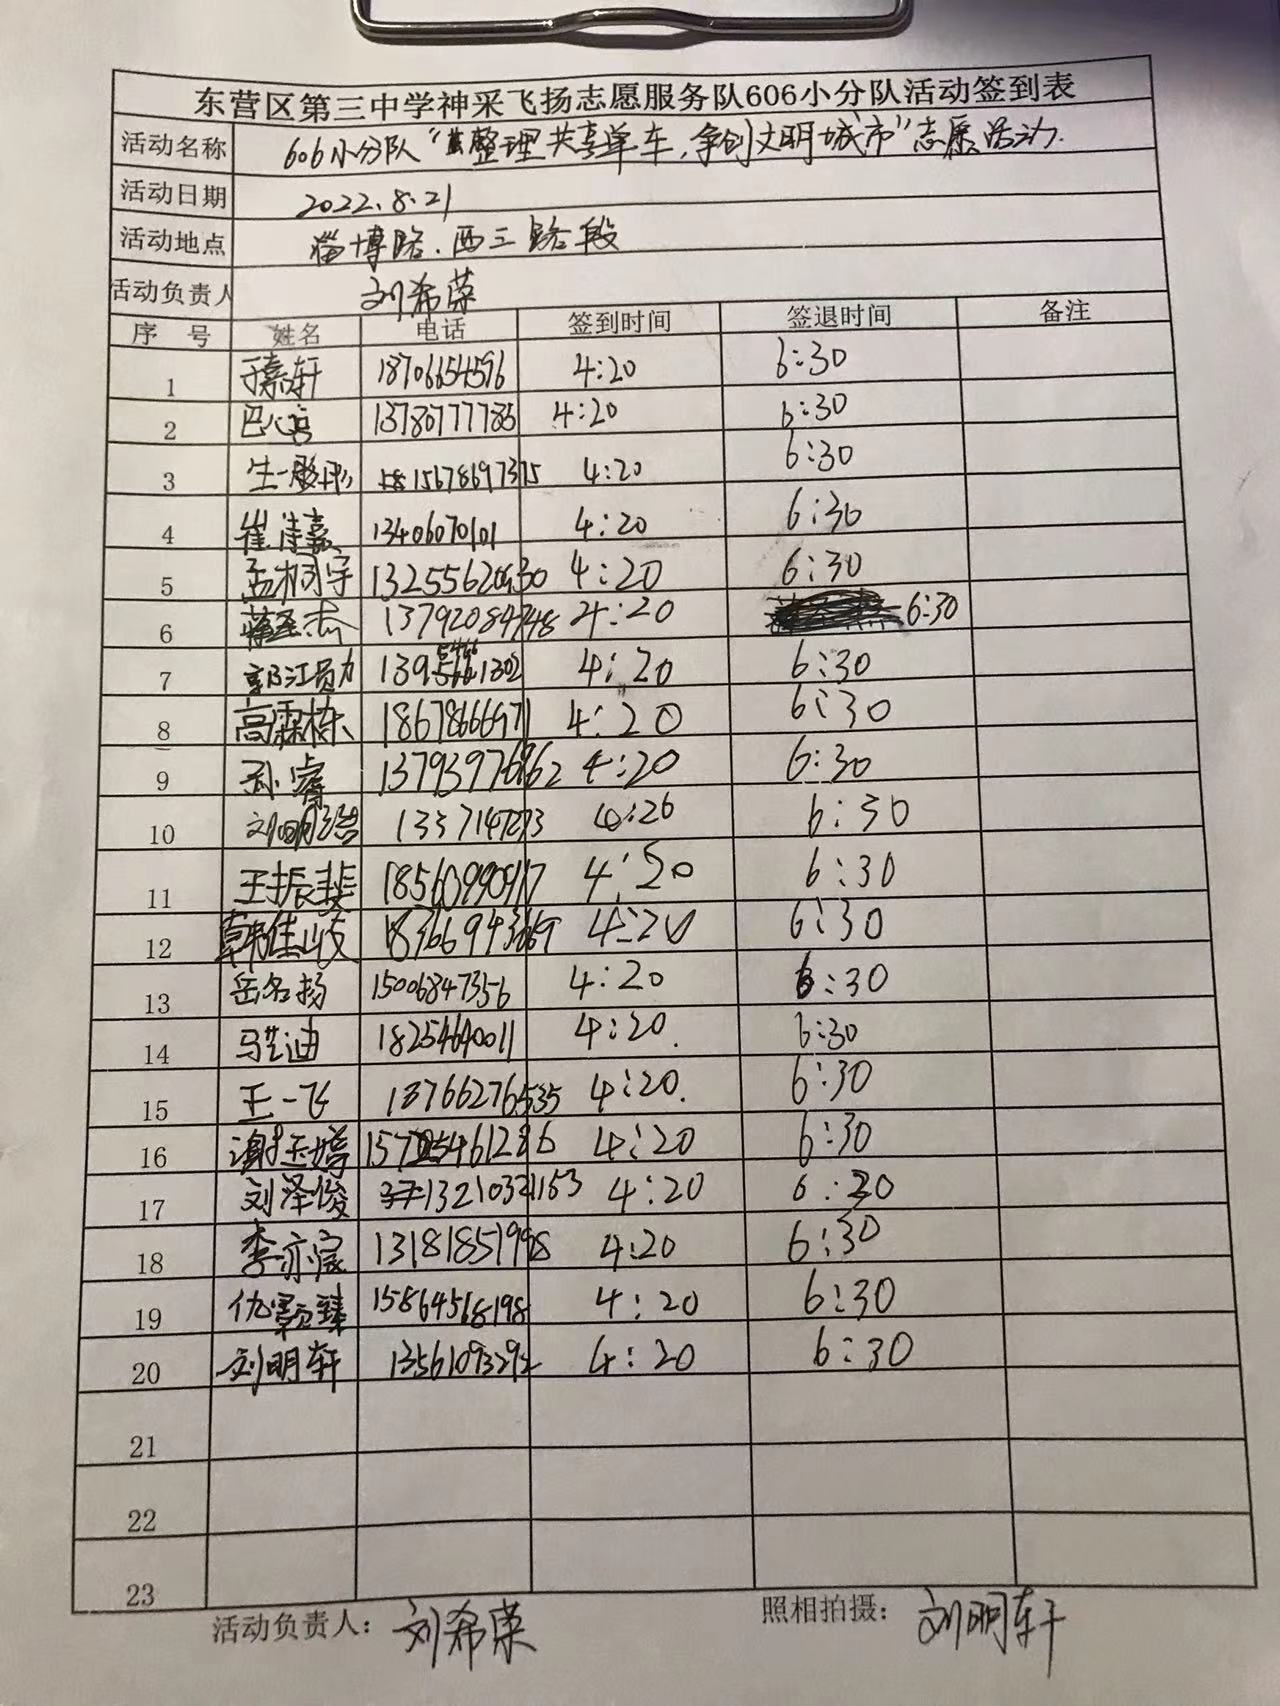 东营区第三中学神采飞扬志愿服务队606小分队活动签到表
活动名称 606小分队“整理共享单车,争创文明城市”志愿活动.
活动日期 2022.8.21
活动地点 淄博路.西三路段
活动负责人 刘希荣
序号 姓名 电话 签到时间 签退时间 备注
1 于嘉轩 18706654596 4:20 6:30
2 4:20 6:30
3 4:20 6:30
4 崔诗嘉 13406070101 4:20 6:30
5 4:20 6:30
6 13792084748 4:20 6:30
7 4:20 6:30
8 高霖栋 4:20 6:30
9 孙睿 4:20 6:30
10 6:30
11 王振斐 4:20 6:30
12 韩佳岐 4:20 6:30
13 岳名扬 15006847356 4:20 6:30
14 马艺迪 18254640011 4:20. 6:30
15 王一飞 18766276535 4:20. 6:30
16 谢玉婷 4:20 6:30
17 刘泽俊 4:20 6:30
18 13181851998 4:20 6:30
19 仇颢臻 15864568198 4:20 6:30
20 刘明轩 13561093292 4:20 6:30
21
22
23
活动负责人：刘希荣 照相拍摄：刘明轩